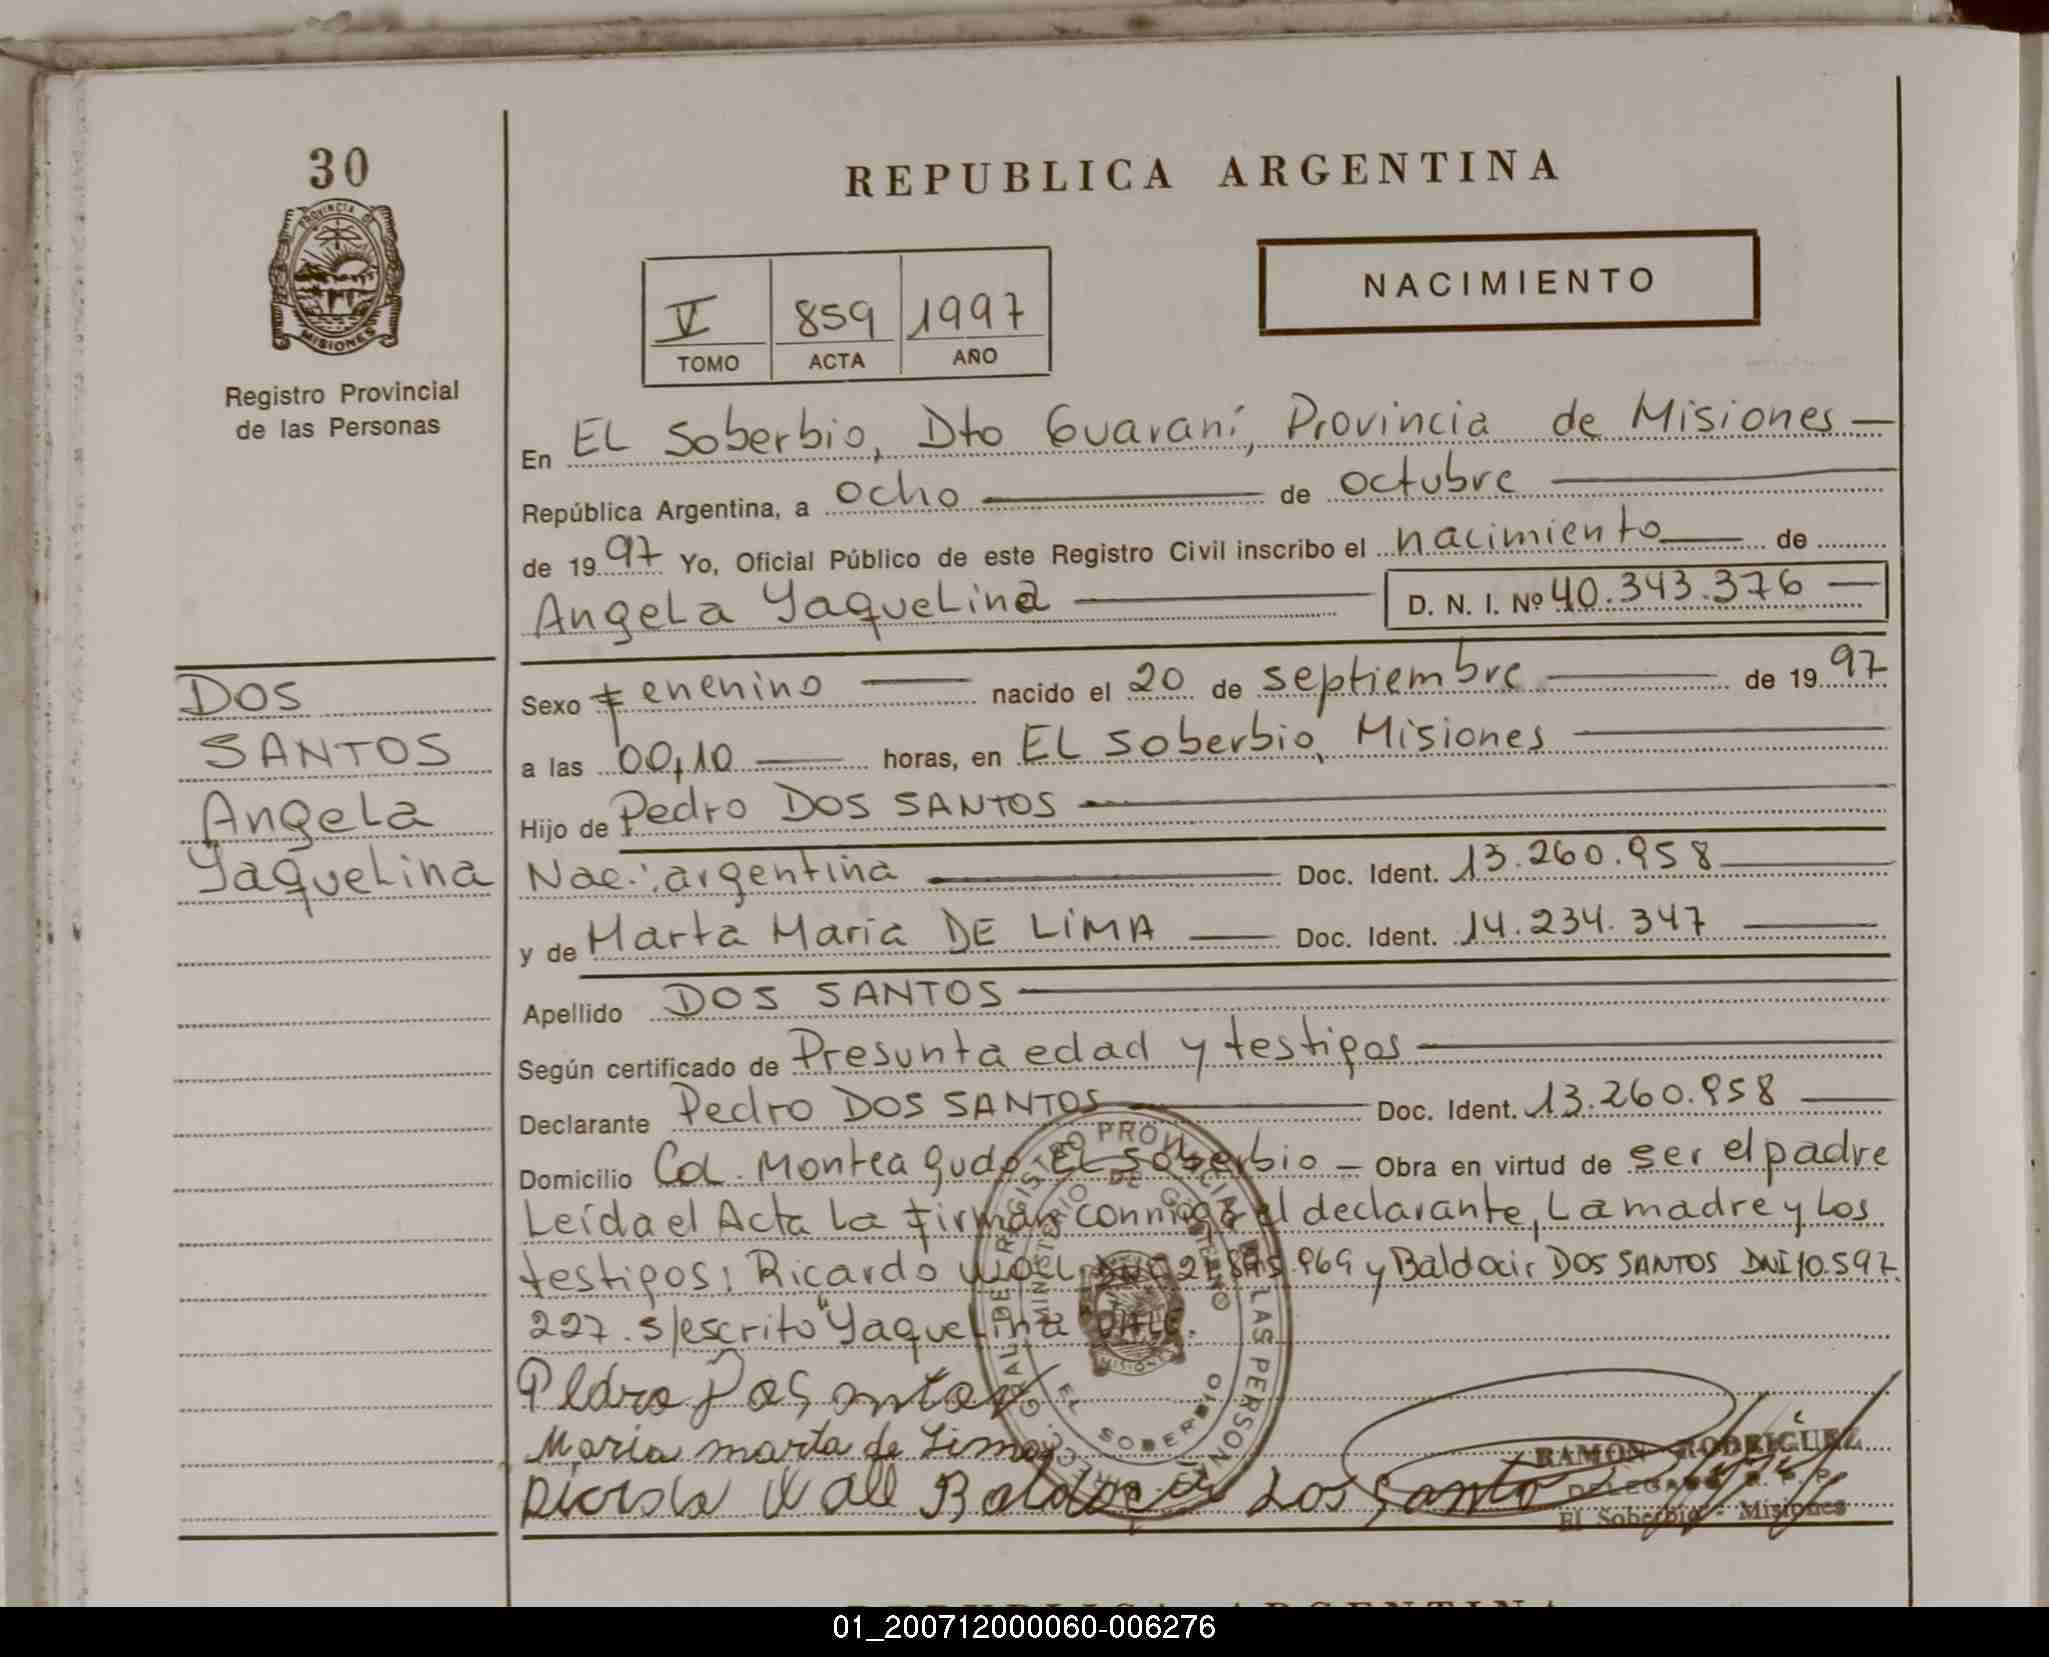 30
PROVINCIA DE
MISIONES
Registro Provincial
de las Personas
REPUBLICA ARGENTINA
NACIMIENTO
V 859 1997
TOMO ACTA AÑO
En EL Soberbio, Dto Guaraní, Provincia de Misiones —
República Argentina, a ocho — de octubre —
de 1997 Yo, Oficial Público de este Registro Civil inscribo el nacimiento — de
Angela Yaquelina — D. N. I. Nº 40.343.376 —
DOS
SANTOS
Angela
Yaquelina
Sexo femenino — nacido el 20 de septiembre — de 1997
a las 00,10 — horas, en EL Soberbio, Misiones —
Hijo de Pedro DOS SANTOS —
Nac.: argentina — Doc. Ident. 13.260.958 —
y de Marta Maria DE LIMA — Doc. Ident. 14.234.347 —
Apellido DOS SANTOS —
Según certificado de Presunta edad y testigos —
Declarante Pedro DOS SANTOS — Doc. Ident. 13.260.958 —
Domicilio Col. Monteagudo, EL Soberbio — Obra en virtud de ser el padre
Leída el Acta La firman conmigo el declarante, La madre y Los
testigos: Ricardo y Baldoir DOS SANTOS DNI 10.597.
227. s/escrito "Yaquelina" VALE.
Pedro Dos Santos
Maria marta de Lima
Baldoir Dos Santo
RAMON RODRIGUEZ
DELEGADO R. P. P.
El Soberbio - Misiones
REGISTRO PROVINCIAL DE LAS PERSONAS
MINISTERIO DE GOBIERNO
MISIONES
EL SOBERBIO
REPUBLICA ARGENTINA
01_200712000060-006276